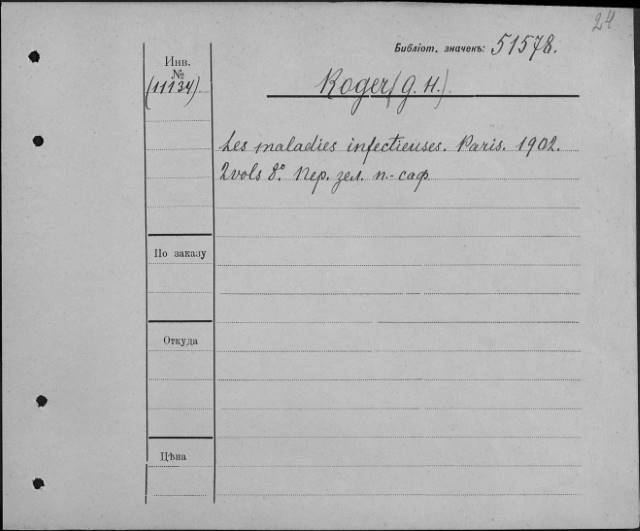 24
Библіот. значекъ: 51578.
Инв.
№
(11134)
Roger (G. H.)
Les maladies infectieuses. Paris. 1902.
2 vols 8º. Пер. зел. п.-саф.
По заказу
Откуда
Цѣна